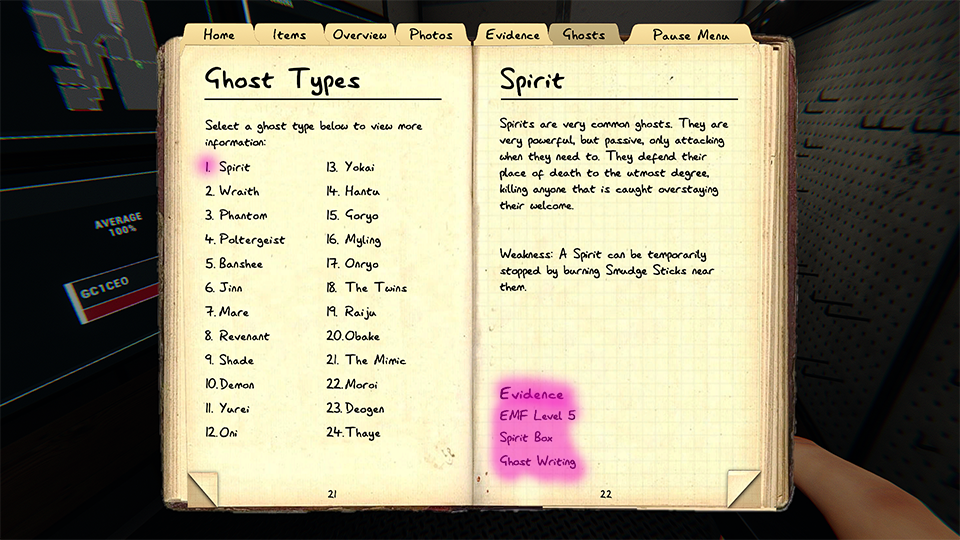 Home Items Overview Photos Evidence Ghosts Pause Menu
Ghost Types
Select a ghost type below to view more
information:
1. Spirit
2. Wraith
3. Phantom
4. Poltergeist
5. Banshee
6. Jinn
7. Mare
8. Revenant
9. Shade
10. Demon
11. Yurei
12. Oni
13. Yokai
14. Hantu
15. Goryo
16. Myling
17. Onryo
18. The Twins
19. Raiju
20. Obake
21. The Mimic
22. Moroi
23. Deogen
24. Thaye
21
Spirit
Spirits are very common ghosts. They are
very powerful, but passive, only attacking
when they need to. They defend their
place of death to the utmost degree,
killing anyone that is caught overstaying
their welcome.
Weakness: A Spirit can be temporarily
stopped by burning Smudge Sticks near
them.
Evidence
EMF Level 5
Spirit Box
Ghost Writing
22
AVERAGE
100%
GC1CEO